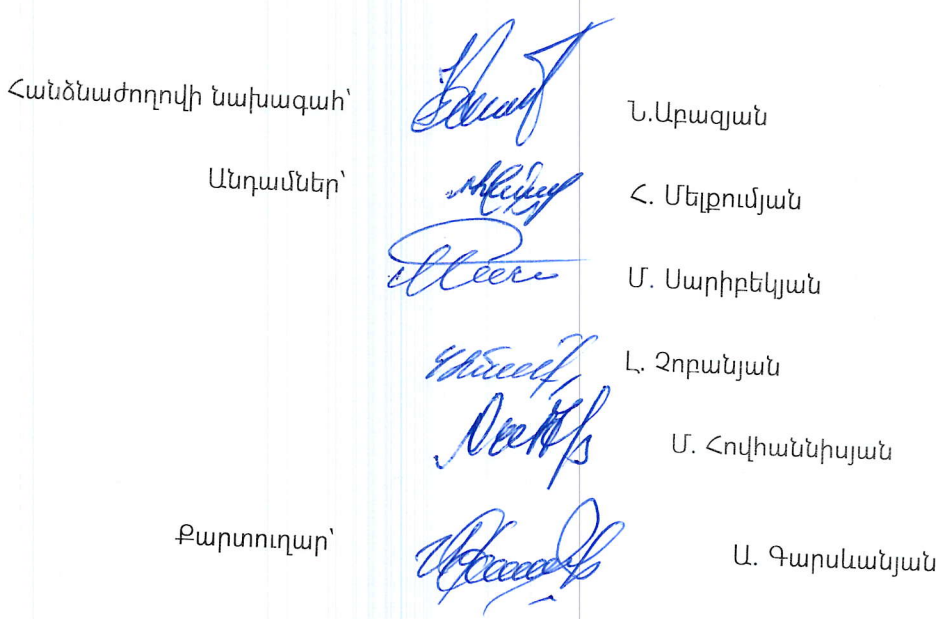 Հանձնաժողովի նախագահ՝ Ն.Աբազյան
Անդամներ՝ Հ. Մելքումյան
Մ. Սարիբեկյան
Լ. Չոբանյան
Մ. Հովհաննիսյան
Քարտուղար՝ Ա. Գարսևանյան